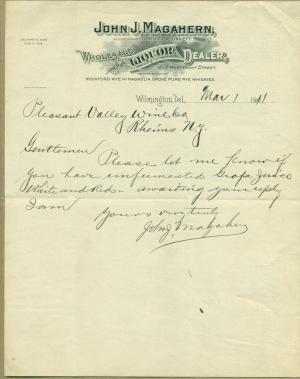 JOHN J. MAGAHERN,
WHOLESALE LIQUOR DEALER,
ROCKFORD RYE AND MAGNOLIA GROVE PURE RYE WHISKIES.
Wilmington, Del., Mar 1 1911
Pleasant Valley Wine Co
Rheims Ny.
Gentlemen
Please let me know if
you have unfermented Grape Juice
White and Red - awaiting your reply
I am
Yours very truly
John J. Magahern